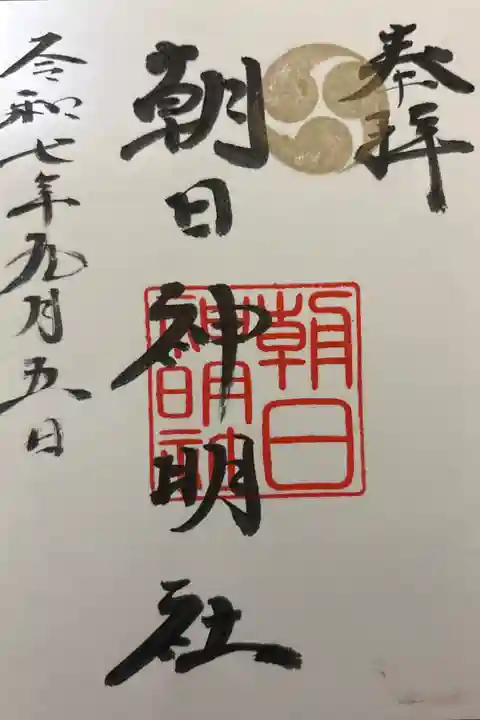 奉拝
朝日神明社
朝日
神明社
令和七年九月五日